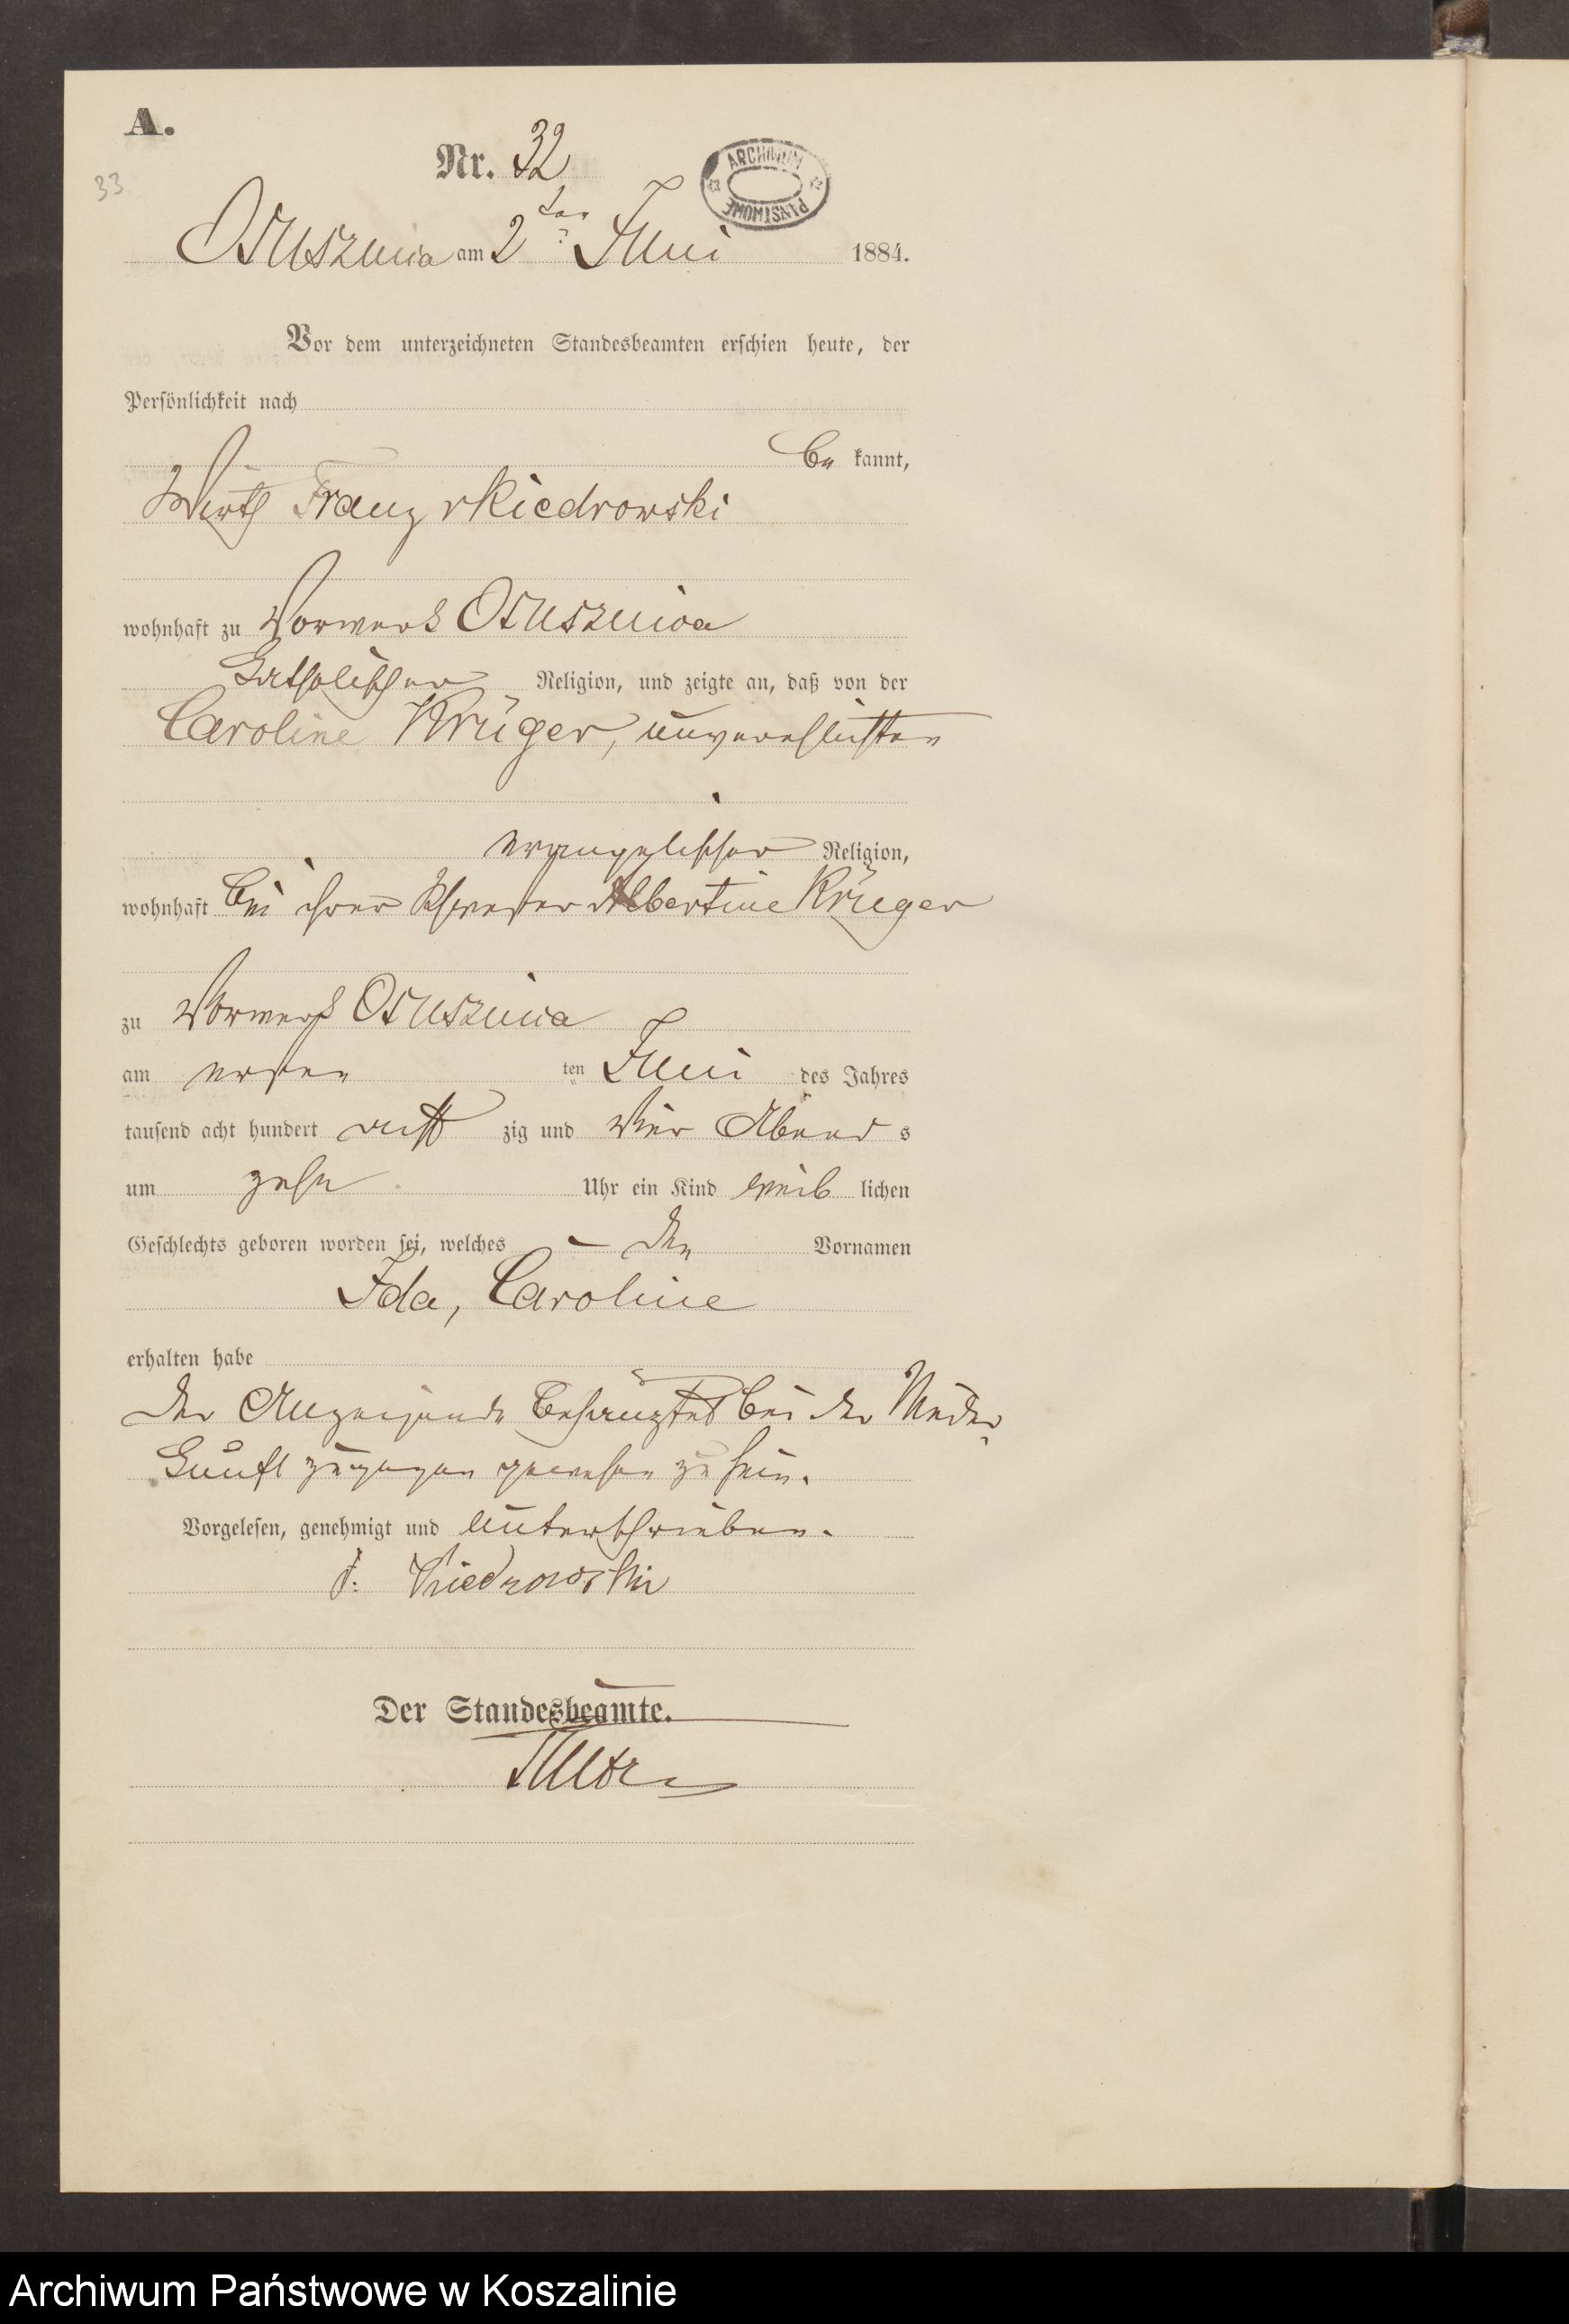 A.
Nr. 32
33
ARCHIWUM PAŃSTWOWE
Osuszniza am 2ten Juni 1884.
Vor dem unterzeichneten Standesbeamten erschien heute, der
Persönlichkeit nach
be kannt,
Wirth Franz Kiedrowski
wohnhaft zu Vorwerk
katholischer Religion, und zeigte an, daß von der
Caroline Krüger, unverehelichten
evangelischer Religion,
wohnhaft bei ihrer Schwester Albertine Krüger
zu Vorwerk
am ersten ten Juni des Jahres
tausend acht hundert acht zig und vier Abend s
um zehn Uhr ein Kind weib lichen
Geschlechts geboren worden sei, welches – den Vornamen
Ida, Caroline
erhalten habe
Der Anzeigende behauptet bei der Nieder-
kunft zugegen gewesen zu sein.
Vorgelesen, genehmigt und unterschrieben.
F. Kiedrowski
Der Standesbeamte.
Archiwum Państwowe w Koszalinie